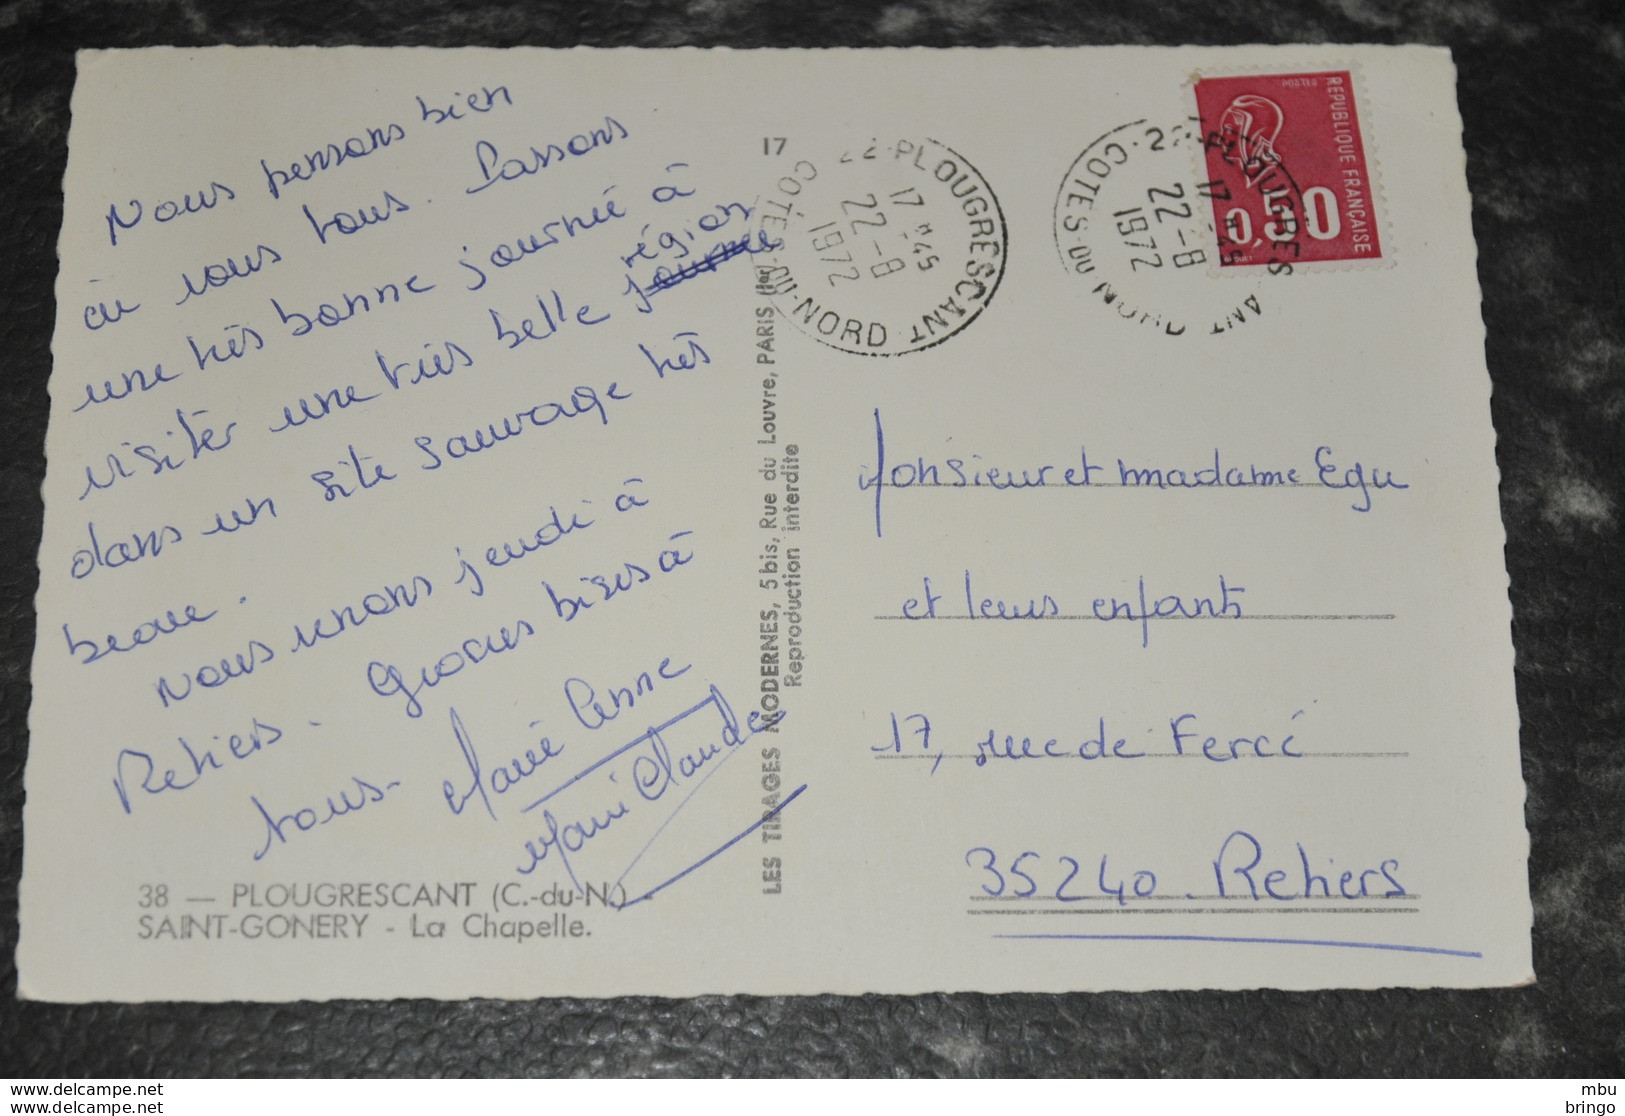 Nous pensons bien
à vous tous. Passons
une très bonne journée à
visiter une très belle région
dans un site sauvage très
beau.
Nous venons jeudi à
Retiers. Grosses bises à
tous.
Marie Anne
Marie Claude
38 — PLOUGRESCANT (C.-du-N.)
SAINT-GONERY - La Chapelle.
17
LES TIRAGES MODERNES, 5 bis, Rue du Louvre, PARIS (Iᵉʳ)
Reproduction interdite
22-PLOUGRESCANT
CÔTES-DU-NORD
17 H 45
22-8
1972
22-PLOUGRESCANT
CÔTES-DU-NORD
17 H 45
22-8
1972
POSTES
RÉPUBLIQUE FRANÇAISE
0,50
BEQUET
Monsieur et madame Egu
et leurs enfants
17, rue de Fercé
35240. Retiers
mbu
bringo
delcampe.net